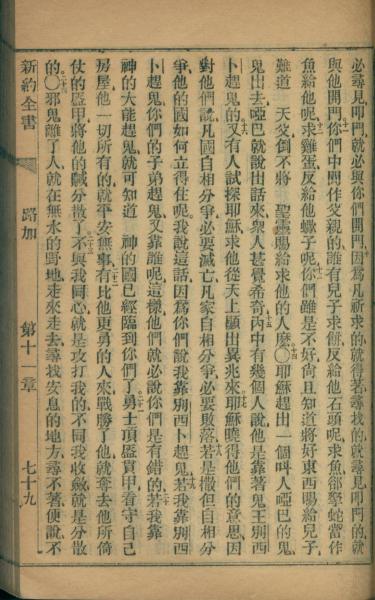 必尋見叩門就必與你們開門因爲凡祈求的就得着尋找的就尋見叩門的就
與他開門你們中間作父親的誰有兒子求餅反給他石頭呢求魚卻拏蛇當作
魚給他呢求雞蛋反給他蠍子呢你們雖是不好尙且知道將好東西賜給兒子
難道 天父倒不將 聖靈賜給求他的人麼○耶穌趕出一個叫人啞巴的鬼
鬼出去啞巴就說出話來衆人甚覺希奇內中有幾個人說他是靠著鬼王別西
卜趕鬼的又有人試探耶穌求他從天上顯出異兆來耶穌曉得他們的意思因
對他們說凡國自相分爭必要滅亡凡家自相分爭必要敗落若是撒但自相分
爭他的國如何立得住呢我說這話因爲你們說我靠別西卜趕鬼若我靠別西
卜趕鬼你們的子弟趕鬼又靠誰呢這樣他們就必說你們是有錯的若我靠
神的大能趕鬼就可知道 神的國已經臨到你們了勇士頂盔貫甲看守自己
房屋他一切所有的就平安無事有比他更勇的人來戰勝了他就奪去他所倚
仗的盔甲將他的贓分散了不與我同心就是攻打我的不同我收斂就是分散
的○邪鬼離了人就在無水的野地走來走去尋找安息的地方尋不著便說不
新約全書 路加 第十一章 七十九